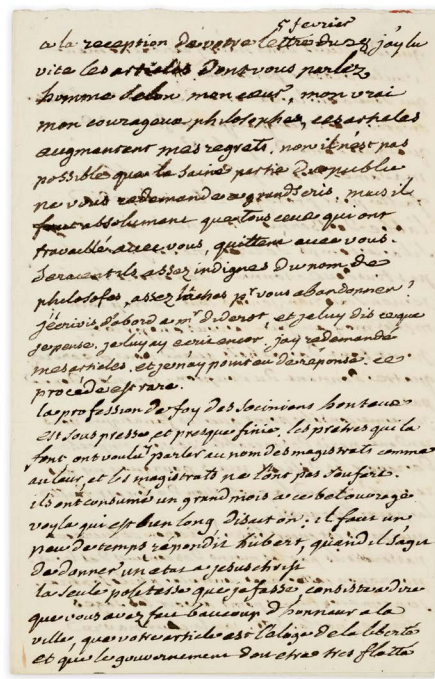 5 fevrier
a la reception de votre lettre du 29 j'ay lu
vite les articles dont vous parlez
homme selon mon cœur, mon vrai
mon courageux philosophe, ces articles
augmentent mes regrets. non il n'est pas
possible que la saine partie du public
ne vous redemande a grands cris, mais il
faut absolument que tous ceux qui ont
travaillé avec vous, quittent avec vous.
seraient ils assez indignes du nom de
philosofes, assez lâches pr vous abandonner?
j'écrivis d'abord a mr diderot, et je luy dis ce que
je pense. je luy ay ecrit encor, j'ay redemandé
mes articles, et je n'ay point eu de reponse. ce
procédé est rare.
la profession de foy des sociniens honteux
est sous presse, et presque finie. les prêtres qui la
font ont voulu parler au nom des magistrats comme
au leur, et les magistrats ne l'ont pas soufert.
ils ont consumé un grand mois a ce bel ouvrage
voyla qui est bien long disait on: il faut un
peu de temps répondit hubert, quand il s'agit
de donner un état a jesuchrist
la seule politesse que je fasse, consiste a dire
que vous avez fait beaucoup d'honneur a la
ville, que votre article est l'éloge de la liberté
et que le gouvernement doit etre tres flatté